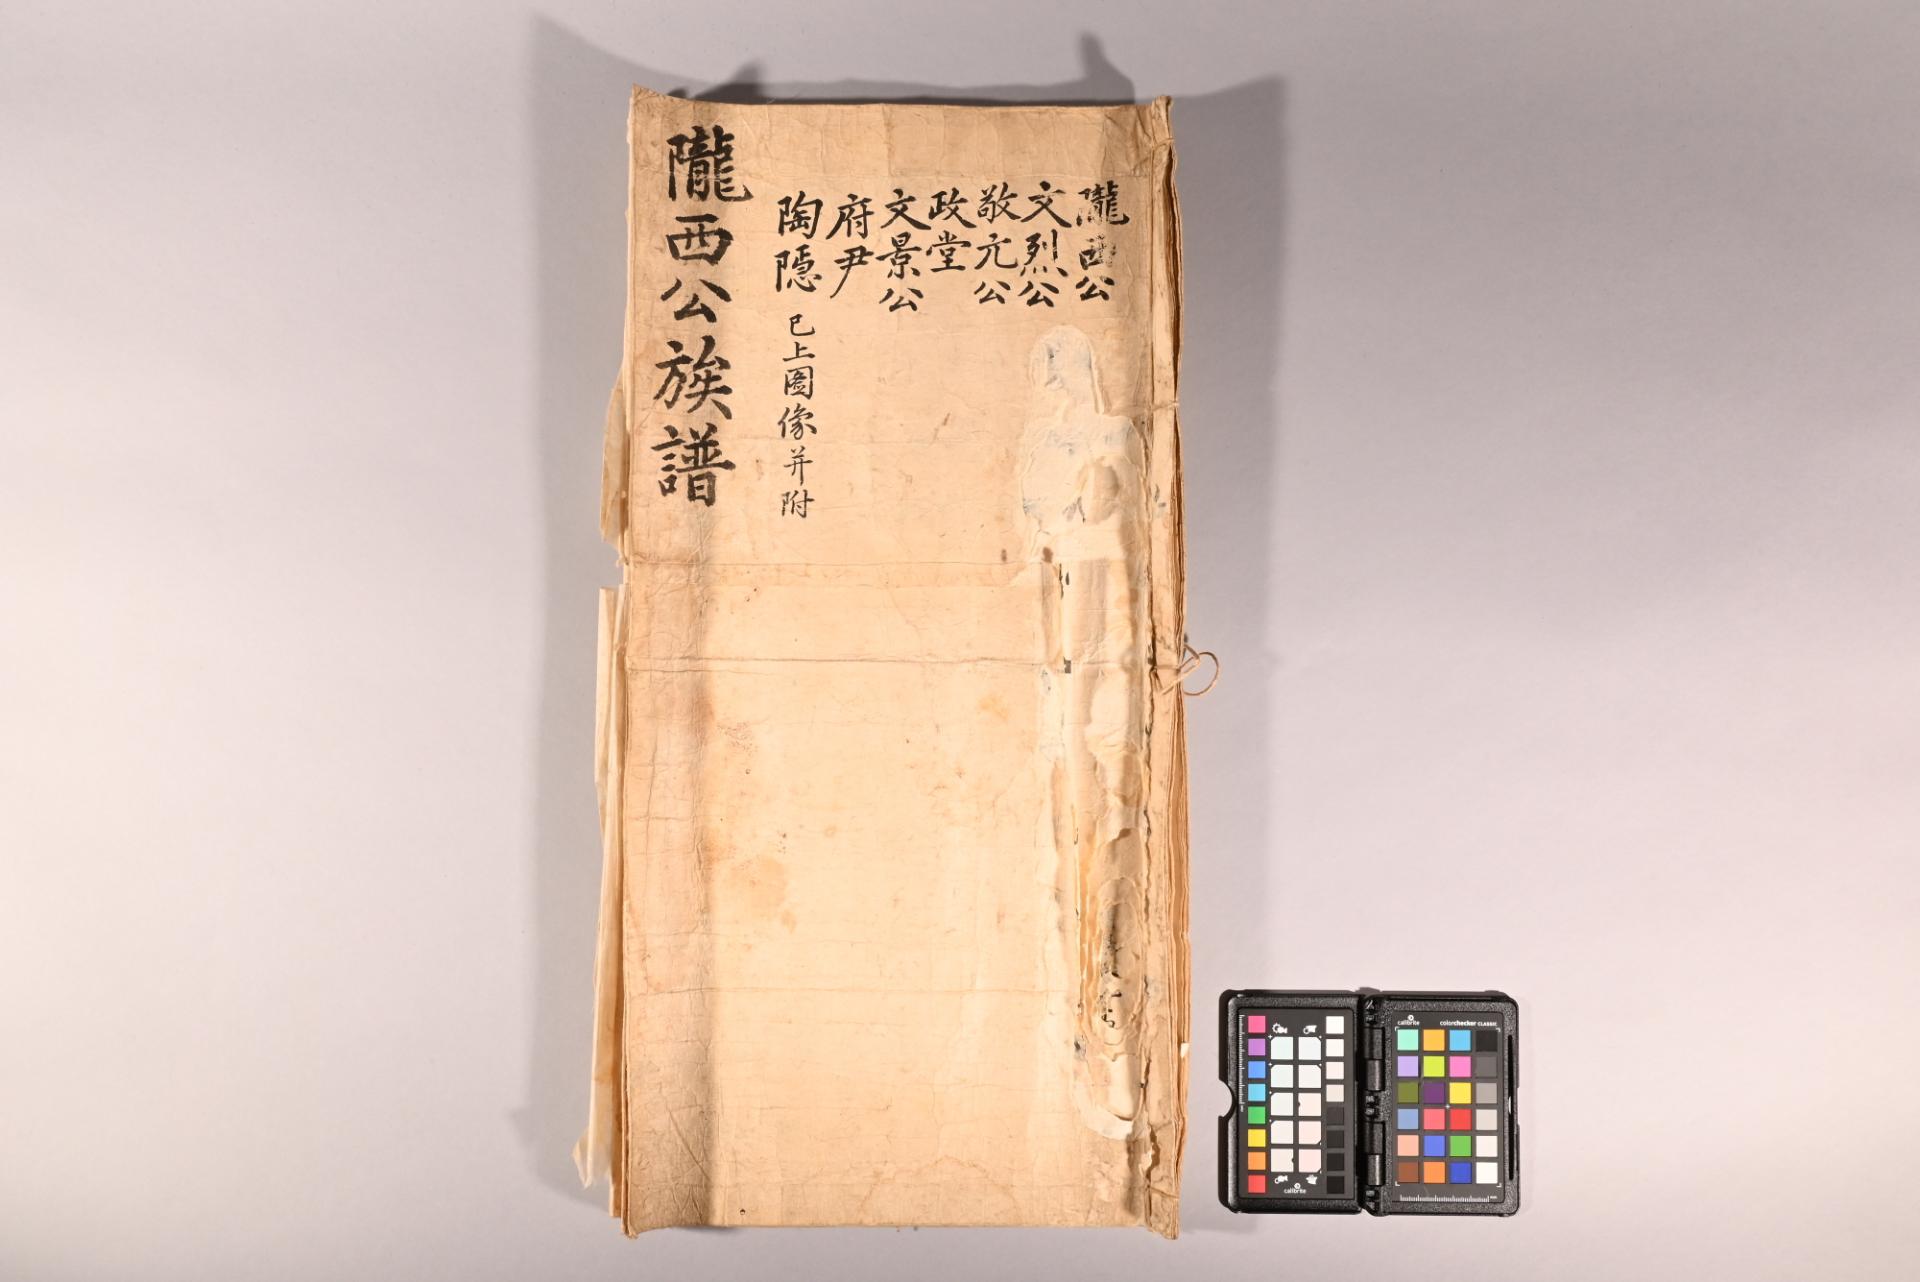 隴西公
文烈公
敬元公
政堂
文景公
府尹
陶隱 已上圖像并附
隴西公族譜
calibrite
calibrite
colorchecker CLASSIC